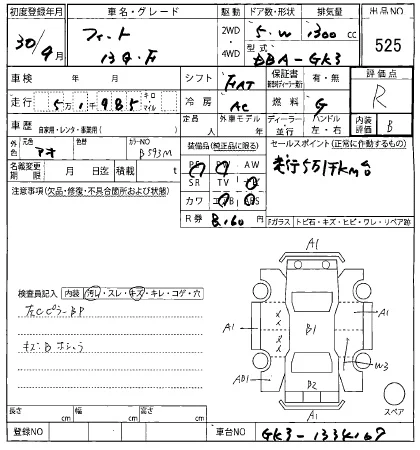 初度登録年月 車名・グレード 駆動 ドア数・形状 排気量 出品NO
30/9月 フィット 2WD 5.W 1300cc
13G.F 4WD 型式 DBA-GK3 525
車検 年 月 日 シフト FAT 保証書 有・無 評価点
走行 5万1千985 キロ マイル 冷房 AC 燃料 G R
車歴 自家用・レンタ・事業用( ) 定員 人 外車モデル 年 ディーラー 並行 ハンドル 左・右 内装評価 B
外色 元色 アオ 色替 カラーNO B593M 装備品(純正品に限る) セールスポイント(正常に作動するもの)
名義変更期限 月 日迄 積載 t PS PW AW 走行5万1千km台
注意事項(欠品・修復・不具合箇所および状態) SR TV
カワ ABS
R券 8,160 Fガラス トビ石・キズ・ヒビ・ワレ・リペア跡
A1
検査員記入 内装 汚れ・スレ・キズ・キレ・コゲ・穴
左CピラーBP
A1 B1 A1
キズ・B
W3
AB1 B2
A1 スペア
長さ cm 幅 cm 高さ cm
登録NO 車台NO GK3-133